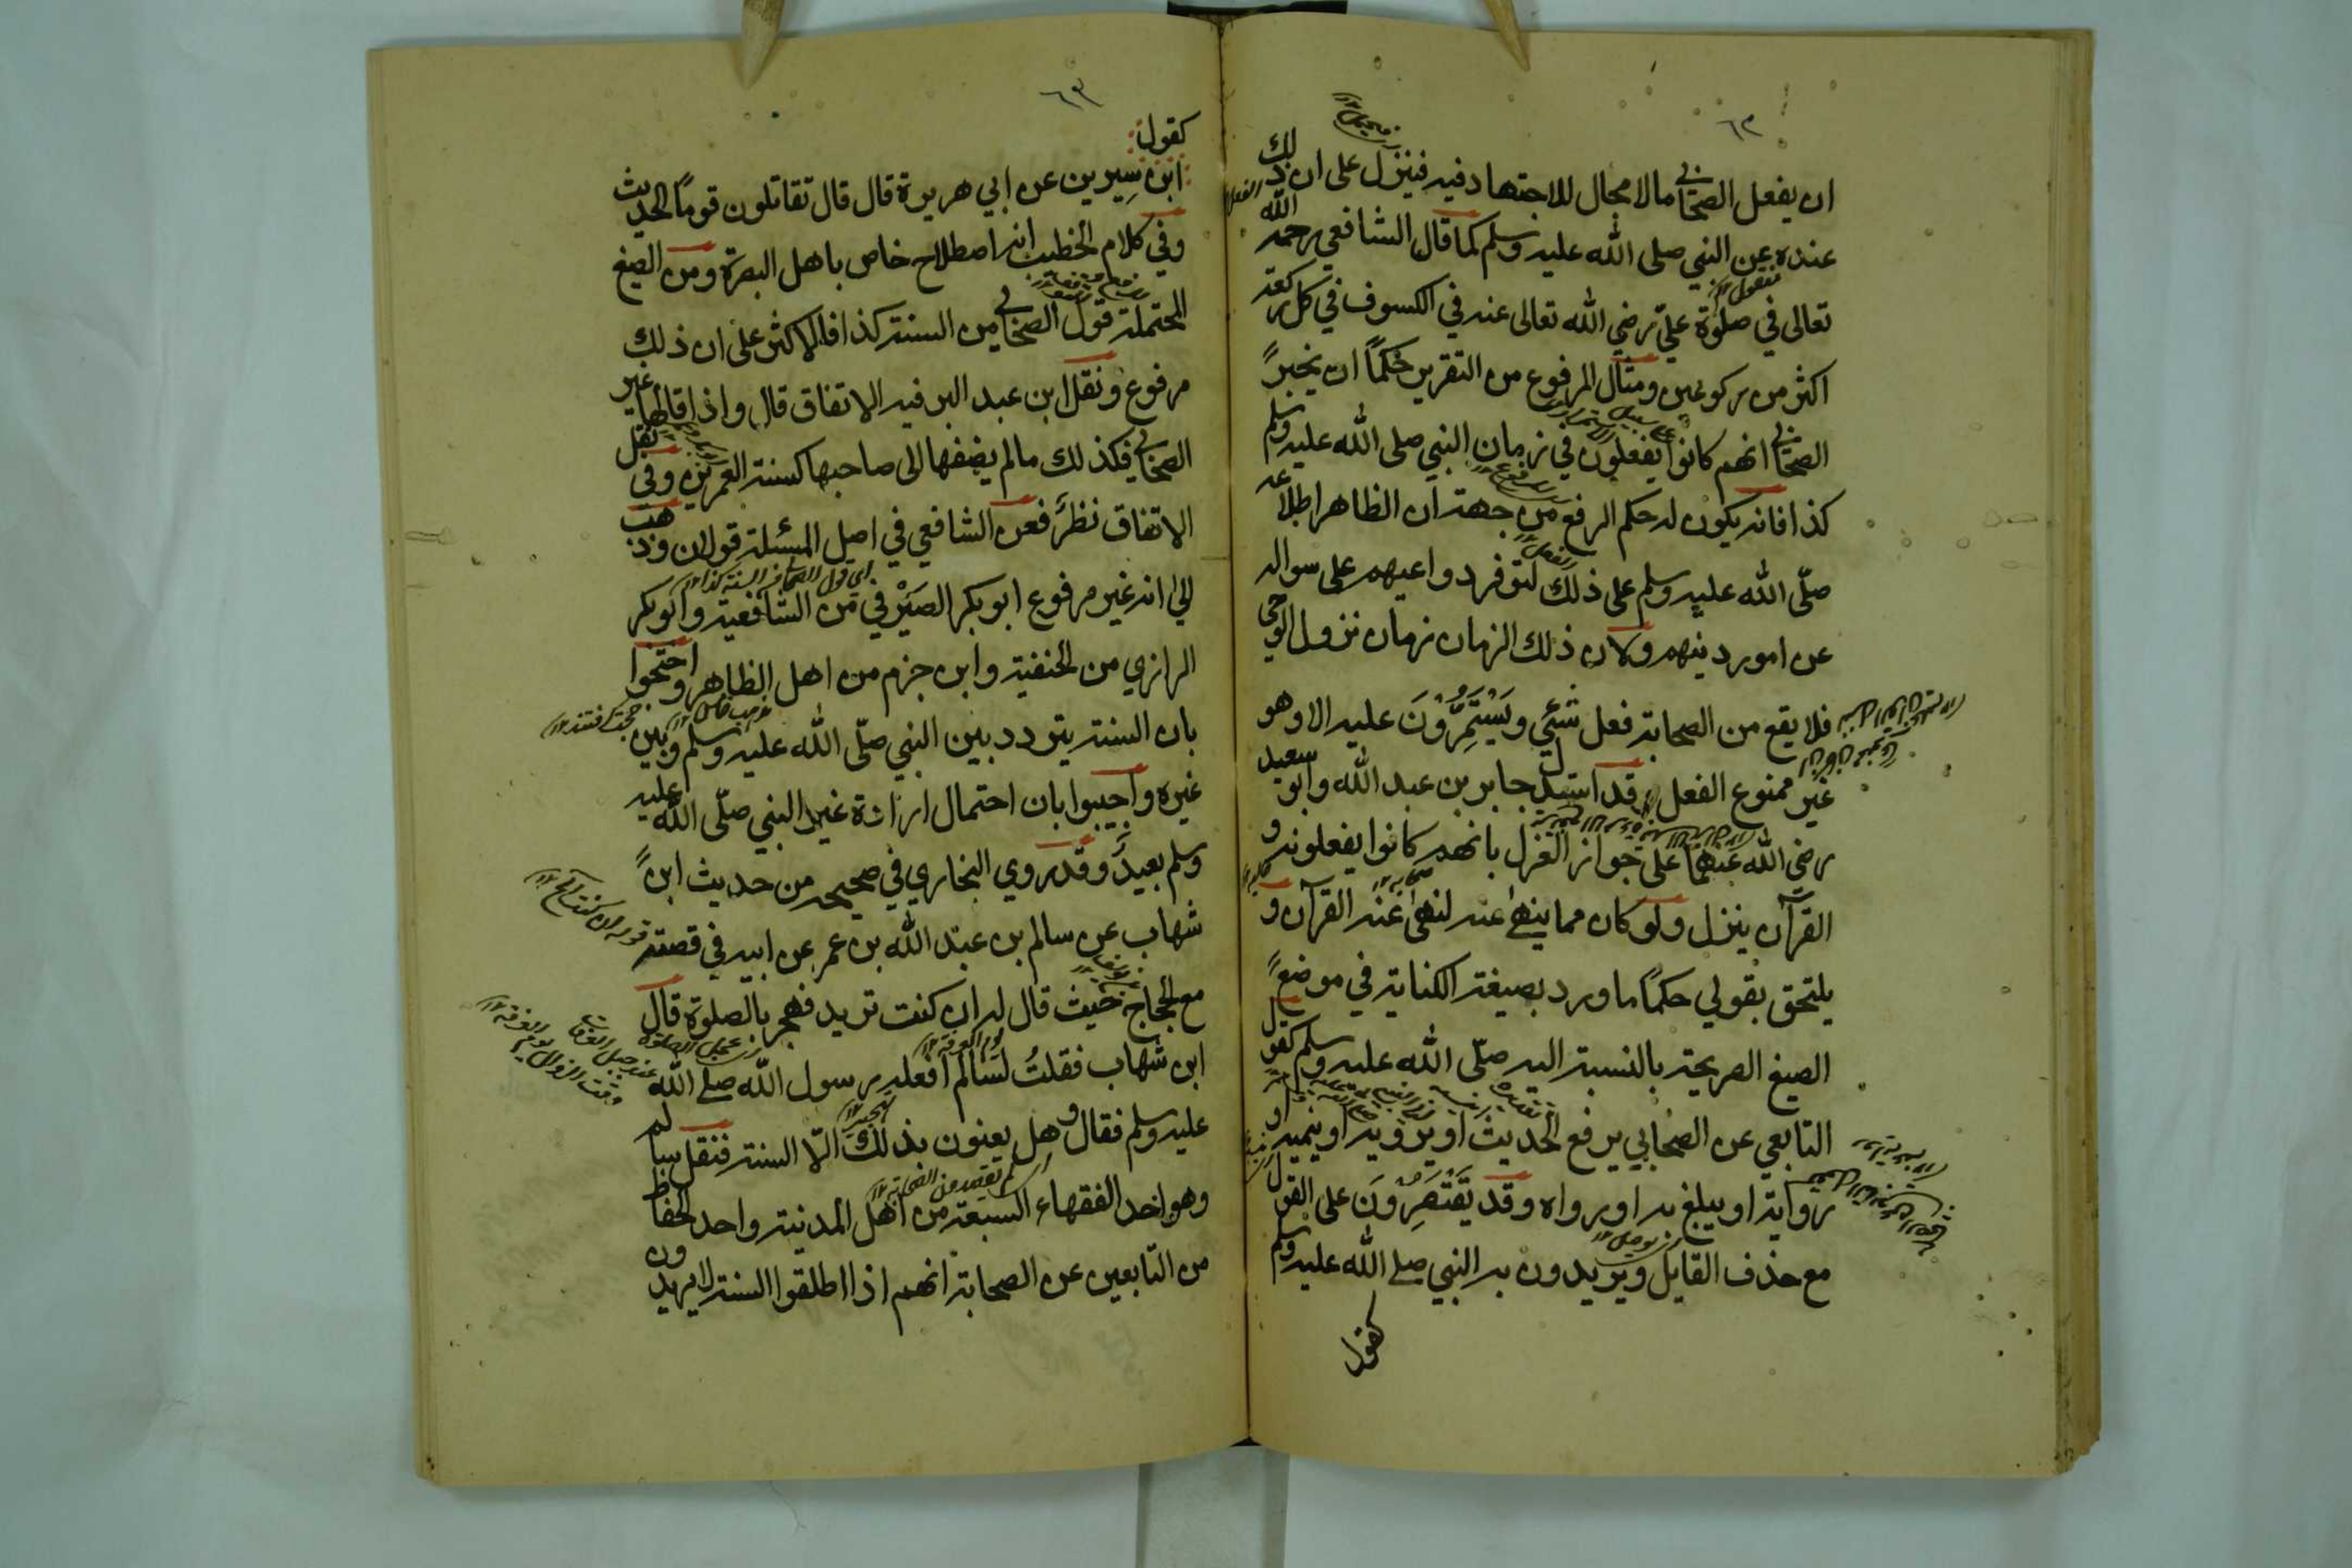 ٦٢
ان يفعل الصحابي مالا مجال للاجتهاد فيه فينزل على ان ذلك
عنده عن النبي صلى الله عليه وسلم كما قال الشافعي رحمه الله
تعالى في صلوة علي رضي الله تعالى عنه في الكسوف في كل ركعة
اكثر من ركوعين ومثال المرفوع من التقرير حكمًا ان يخبر
الصحابي انهم كانوا يفعلون في زمان النبي صلى الله عليه وسلم
كذا فانه يكون له حكم الرفع من جهة ان الظاهر اطلاعه
صلّى الله عليه وسلم على ذلك لتوفر دواعيهم على سواله
عن امور دينهم ولان ذلك الزمان زمان نزول الوحي
فلا يقع من الصحابة فعل شئي ويَسْتَمِرُّوْنَ عليه الا وهو
غير ممنوع الفعل وقد استدل جابر بن عبد الله وابو سعيد
رضى الله عنهما على جواز العزل بانهم كانوا يفعلونه و
القرآن ينزل ولو كان مما ينهى عنه لنهى عنه القرآن و
يلتحق بقولي حكمًا ما ورد بصيغة الكناية في موضع
الصيغ الصريحة بالنسبة اليه صلّى الله عليه وسلم كقول
التابعي عن الصحابي يرفع الحديث او يرويه او ينميه او
رواية او يبلغ به او رواه وقد يَقْتَصِرُوْنَ على القول
مع حذف القايل ويريدون به النبي صلى الله عليه وسلم
كقول
٦٣
كقول
ابن سِيرين عن ابي هريرة قال قال تقاتلون قومًا الحديث
وفي كلام الخطيب انه اصطلاح خاص باهل البصرة ومن الصيغ
المحتملة قول الصحابي من السنة كذا فالاكثر على ان ذلك
مرفوع ونقل ابن عبد البر فيه الاتفاق قال واذا قالها غير
الصحابي فكذلك مالم يضفها الى صاحبها كسنة العمرين وفي نقل
الاتفاق نظرٌ فعن الشافعي في اصل المسئلة قولان وذهب
الى انه غير مرفوع ابو بكر الصَيْرفي من الشافعية وابو بكر
الرازي من الحنفية وابن حزم من اهل الظاهر واحتجوا
بان السنة يتردد بين النبي صلّى الله عليه وسلم وبين
غيره واجيبوا بان احتمال ارادة غير النبي صلّى الله عليه
وسلم بعيدٌ وقد روي البخاري في صحيحه من حديث ابن
شهاب عن سالم بن عبد الله بن عمر عن ابيه في قصته
مع الحجاج حيث قال له ان كنت تريد فهجر بالصلوة قال
ابن شهاب فقلتُ لسالم أفعله رسول الله صلى الله
عليه وسلم فقال وهل يعنون بذلك الّا السنة فنقل سالم
وهو احد الفقهاء السبعة من اهل المدنية واحد الحفاظ
من التّابعين عن الصحابة انهم اذا اطلقوا السنة لا يريدون